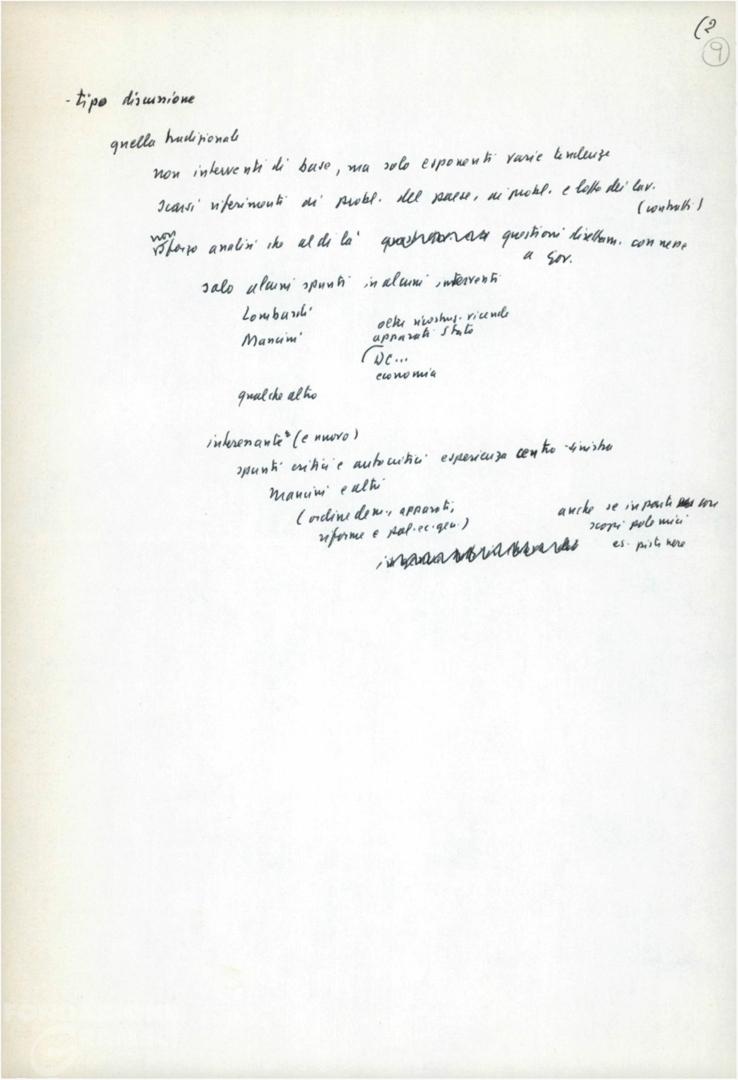 (2
9
- tipo discussione
quella tradizionale
non interventi di base, ma solo esponenti varie tendenze
scarsi riferimenti ai probl. del paese, ai probl. e lotte dei lav.
(contratti)
non sforzo analisi che al di là questioni direttam. connesse
a Gov.
solo alcuni spunti in alcuni interventi
Lombardi
Mancini
oltre ricostruz. vicende
apparati Stato
(DC...
economia
qualche altro
interessante (e nuovo)
spunti critici e autocritici esperienza centro-sinistra
Mancini e altri
(ordine dem., apparati,
riforme e pol. ec. gen.)
anche se in parte con
scopi polemici
es. piste nere
FONDAZIONE